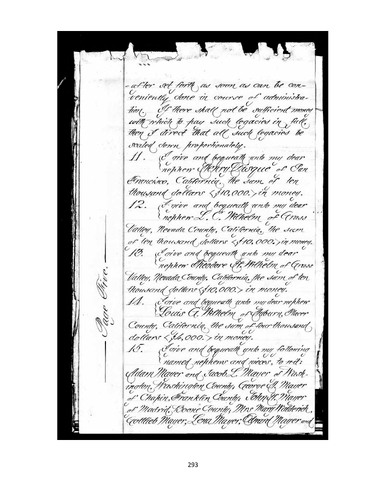 after set forth as soon as can be con-
veniently done in course of administra-
tion. If there shall not be sufficient money
with which to pay such legacies in full,
then I direct that all such legacies be
scaled down proportionately.
11. I give and bequeath unto my dear
nephew Henry Disque of San
Francisco, California, the sum of ten
thousand dollars <$10,000.> in money.
12. I give and bequeath unto my dear
nephew L. C. Wilhelm of Grass
Valley, Nevada County, California, the sum
of ten thousand dollars <$10,000.> in money.
13. I give and bequeath unto my dear
nephew Theodore H. Wilhelm of Grass
Valley, Nevada County, California, the sum of ten
thousand dollars <$10,000.> in money.
14. I give and bequeath unto my dear nephew
Louis A. Wilhelm of Auburn, Placer
County, California, the sum of four thousand
dollars <$4,000.> in money.
15. I give and bequeath unto my following
named nephews and nieces, to wit:
Adam Mayer and Jacob L. Mayer of Wash-
ington, Washington County, George Mayer
of Chapin, Franklin County, John H. Mayer
of Madrid, Boone County, Mrs Mary
Gottlieb Mayer, Lena Mayer, Edward Mayer and
Page Five.
293